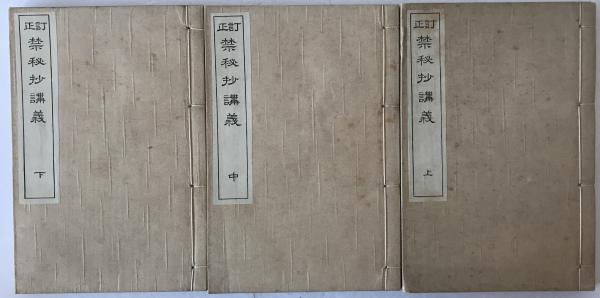 訂正
禁秘抄講義
上
訂正
禁秘抄講義
中
訂正
禁秘抄講義
下